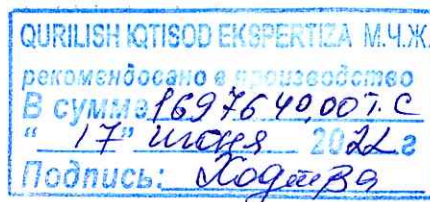 QURILISH IQTISOD EKSPERTIZA М.Ч.Ж.
рекомендовано в производство
В сумме 1697640,00 т.с
“17” июня 2022г
Подпись: